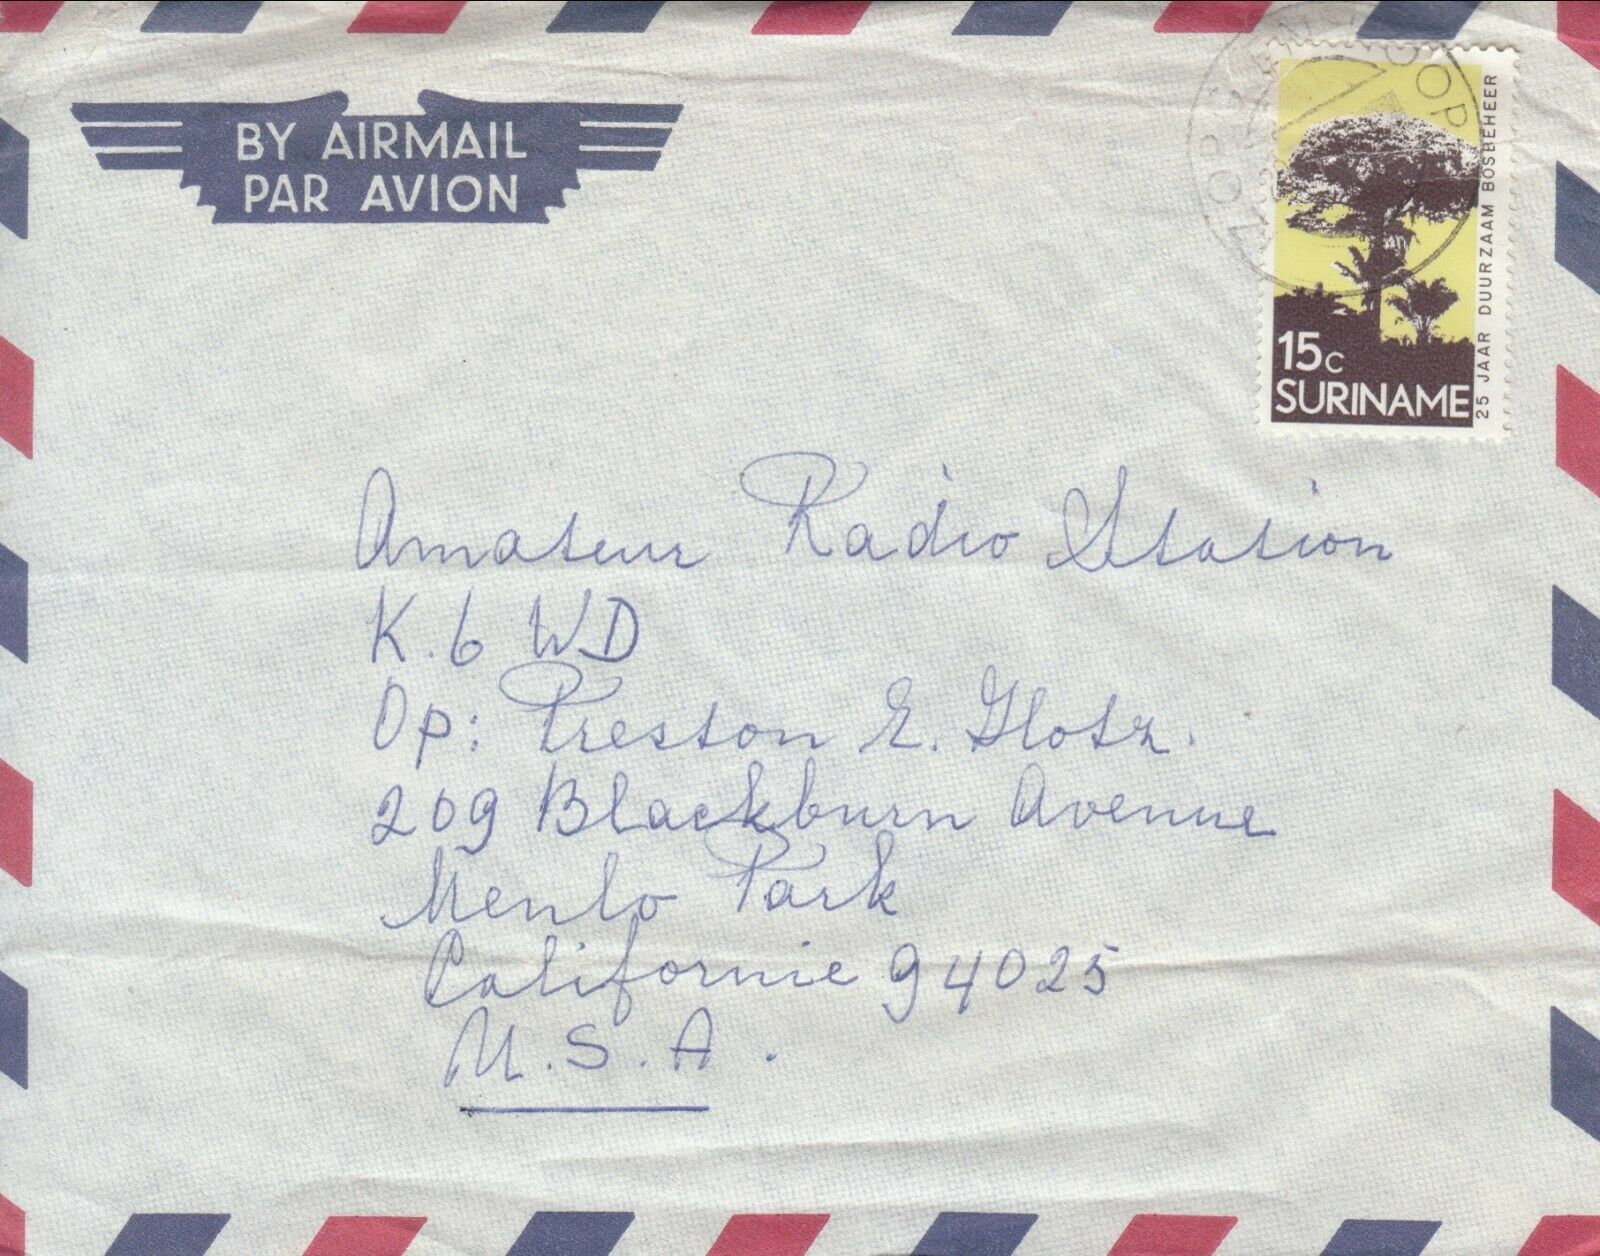 BY AIRMAIL
PAR AVION
ZORG EN HOOP
25 JAAR DUURZAAM BOSBEHEER
15c
SURINAME
Amateur Radio Station
K.6 WD
Op: Preston E. Glotz.
209 Blackburn Avenue
Menlo Park
Californie 94025
U.S.A.